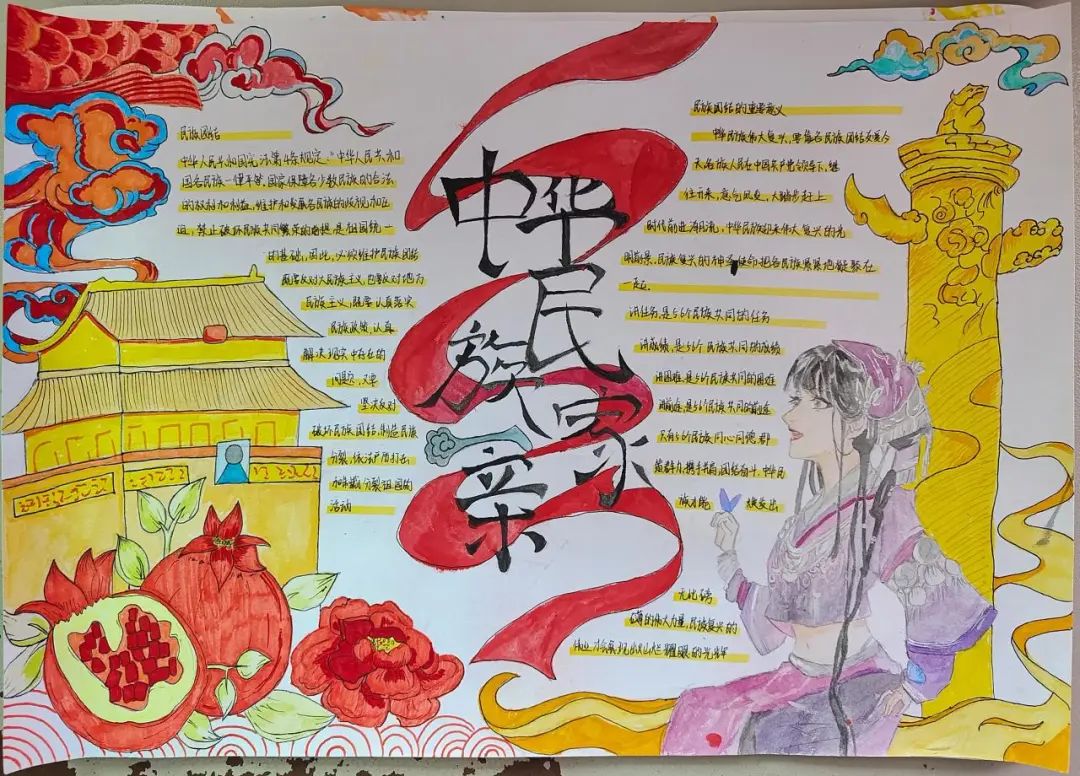 中华民族一家亲
民族团结
中华人民共和国宪法第4条规定:"中华人民共和
国各民族一律平等,国家保障各少数民族的合法
的权利和利益,维护和发展各民族的
禁止破坏民族
的基础,因此,
既要反对大民族主义,也要反对地方
民族主义,既要认真落实
民族政策,认真
解决现实中存在的
问题,又要
坚决反对
破坏民族团结,制造民族
分裂,依法严厉打击
分裂祖国的
活动
民族团结的重要意义
中华民族伟大复兴,要靠各民族团结奋斗今
天各族人民在中国共产党领导下,继
往开来,意气风发,大踏步赶上
时代前进潮流,中华民族迎来伟大复兴的光
明前景,民族复兴的神圣使命把各民族紧紧地凝聚在
一起
讲任务,是56个民族共同的任务
讲成绩,是56个民族共同的成绩
讲困难,是56个民族共同的困难
讲前途,是56个民族共同的前途
只有56个民族同心同德,群
策群力,携手并肩,团结奋斗,中华民
族才能 焕发出
无比磅
礴的伟大力量,民族复兴的
伟业才会展现出灿烂耀眼的光辉